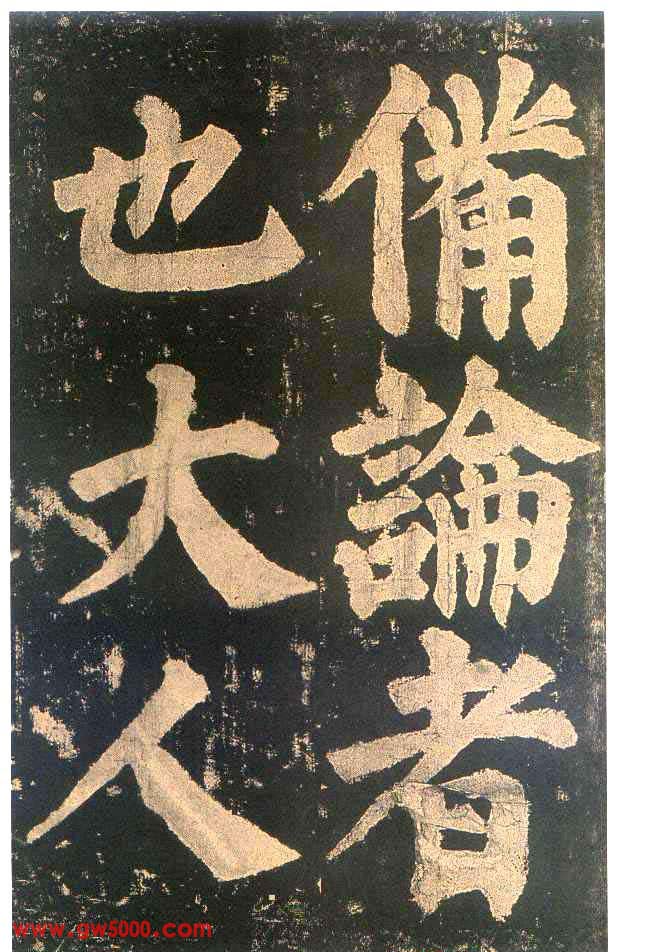 備論者
也大人
www.gw5000.com